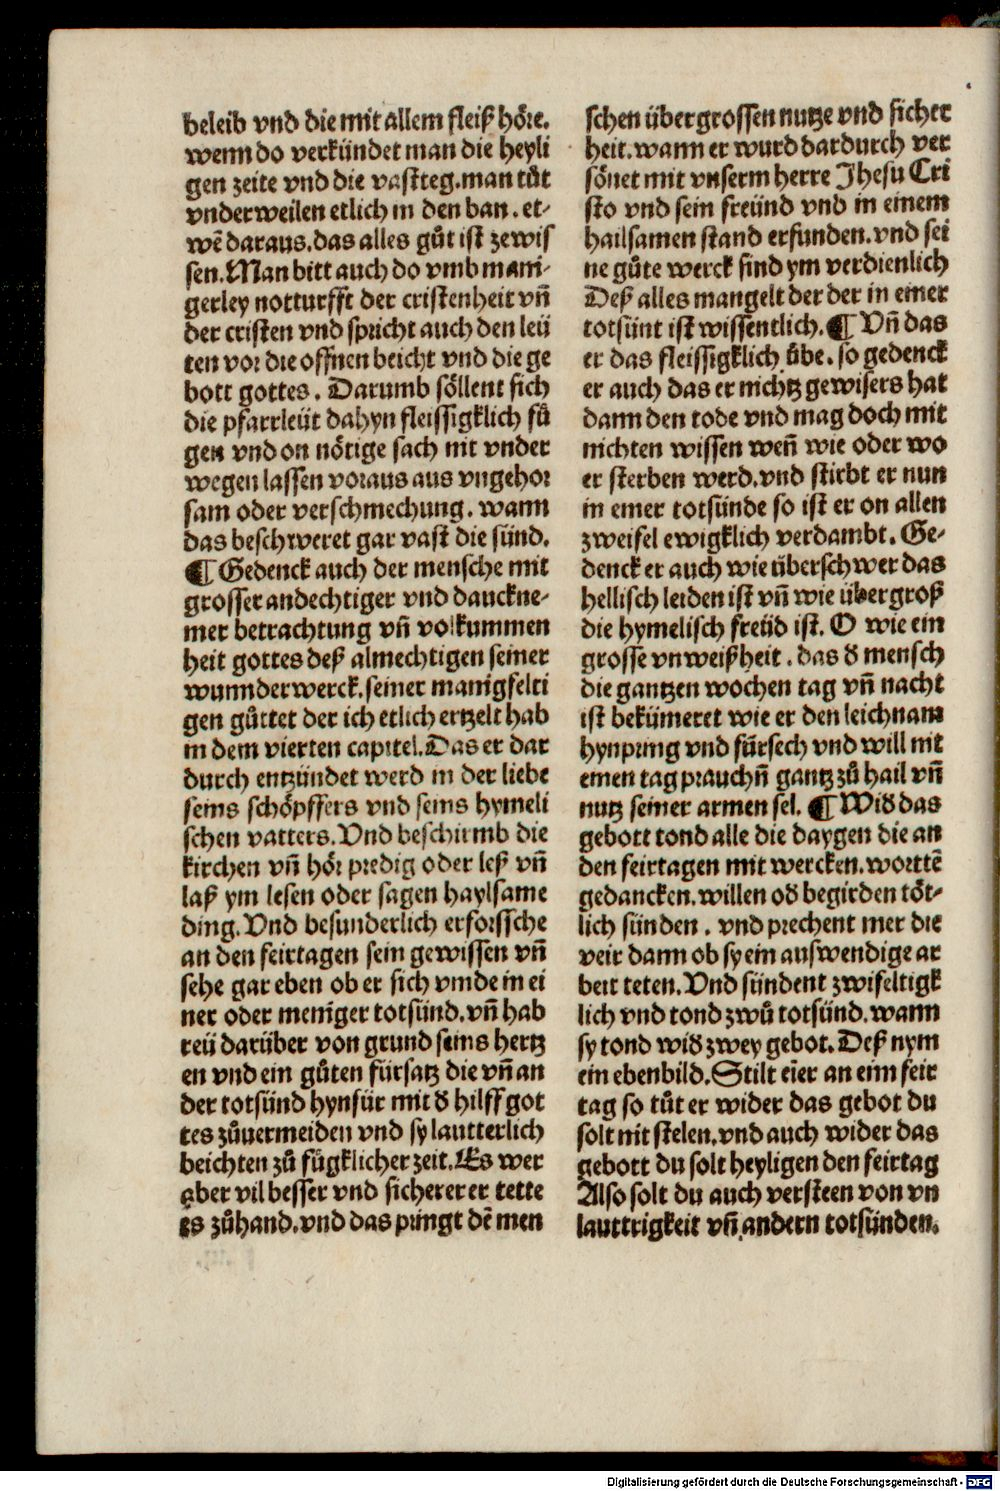 beleib vnd die mit allem fleiß höre.
wenn do verkündet man die heyli
gen zeite vnd die vastteg. man tůt
vnderweilen etlich in den ban. et-
wē daraus. das alles gůt ist ze wis
sen. Man bitt auch do vmb mani-
gerley notturfft der cristenheit vn̄
der cristen vnd spricht auch den leü
ten vor die offnen beicht vnd die ge
bott gottes. Darumb söllent sich
die pfarrleüt dahyn fleissigklich fů
gen vnd on nötige sach nit vnder
wegen lassen voraus aus vngehor
sam oder verschmechung. wann
das beschweret gar vast die sünd.
¶ Gedenck auch der mensche mit
grosser andechtiger vnd danckne-
mer betrachtung vn̄ volkummen
heit gottes deß almechtigen seiner
wunnderwerck. seiner manigfelti
gen güttet der ich etlich ertzelt hab
in dem vierten capitel. Das er dar
durch entzündet werd in der liebe
seins schöpffers vnd seins hymeli
schen vatters. Vnd beschirmb die
kirchen vn̄ hör predig oder leß vn̄
laß ym lesen oder sagen haylsame
ding. Vnd besunderlich erforssche
an den feirtagen sein gewissen vn̄
sehe gar eben ob er sich vinde in ei
ner oder meniger totsünd. vn̄ hab
reü darüber von grund seins hertz
en vnd ein gůten fürsatz die vn̄ an
der totsünd hynfür mit d̕ hilff got
tes zůuermeiden vnd sy lautterlich
beichten zů fůgklicher zeit. Es wer
aber vil besser vnd sicherer er tette
es zůhand. vnd das pringt dē men
schen übergrossen nutze vnd sicher
heit. wann er wurd dardurch ver
sönet mit vnserm herre Jhesu Cri
sto vnd sein freünd vnd in einem
hailsamen stand erfunden. vnd sei
ne gůte werck sind ym verdienlich
Deß alles mangelt der der in einer
totsünt ist wissentlich. ¶ Vn̄ das
er das fleissigklich übe. so gedenck
er auch das er nichtz gewisers hat
dann den tode vnd mag doch mit
nichten wissen wen̄ wie oder wo
er sterben werd. vnd stirbt er nun
in einer totsünde so ist er on allen
zweifel ewigklich verdambt. Ge-
denck er auch wie überschwer das
hellisch leiden ist vn̄ wie übergroß
die hymelisch freüd ist. O wie ein
grosse vnweißheit. das d̕ mensch
die gantzen wochen tag vn̄ nacht
ist bekümeret wie er den leichnam
hynpring vnd fürsech vnd will nit
einen tag prauchn̄ gantz zů hail vn̄
nutz seiner armen sel. ¶ Wid̕ das
gebott tond alle die daygen die an
den feirtagen mit wercken. worttē
gedancken. willen od̕ begirden töt-
lich sünden. vnd prechent mer die
veir dann ob sy ein auswendige ar
beit teten. Vnd sündent zwifeltigk
lich vnd tond zwů totsünd. wann
sy tond wid̕ zwey gebot. Deß nym
ein ebenbild. Stilt eīer an eim feir
tag so tůt er wider das gebot du
solt nit stelen. vnd auch wider das
gebott du solt heyligen den feirtag
Also solt du auch versteen von vn
lauttrigkeit vn̄ andern totsünden.
Digitalisierung gefördert durch die Deutsche Forschungsgemeinschaft - DFG